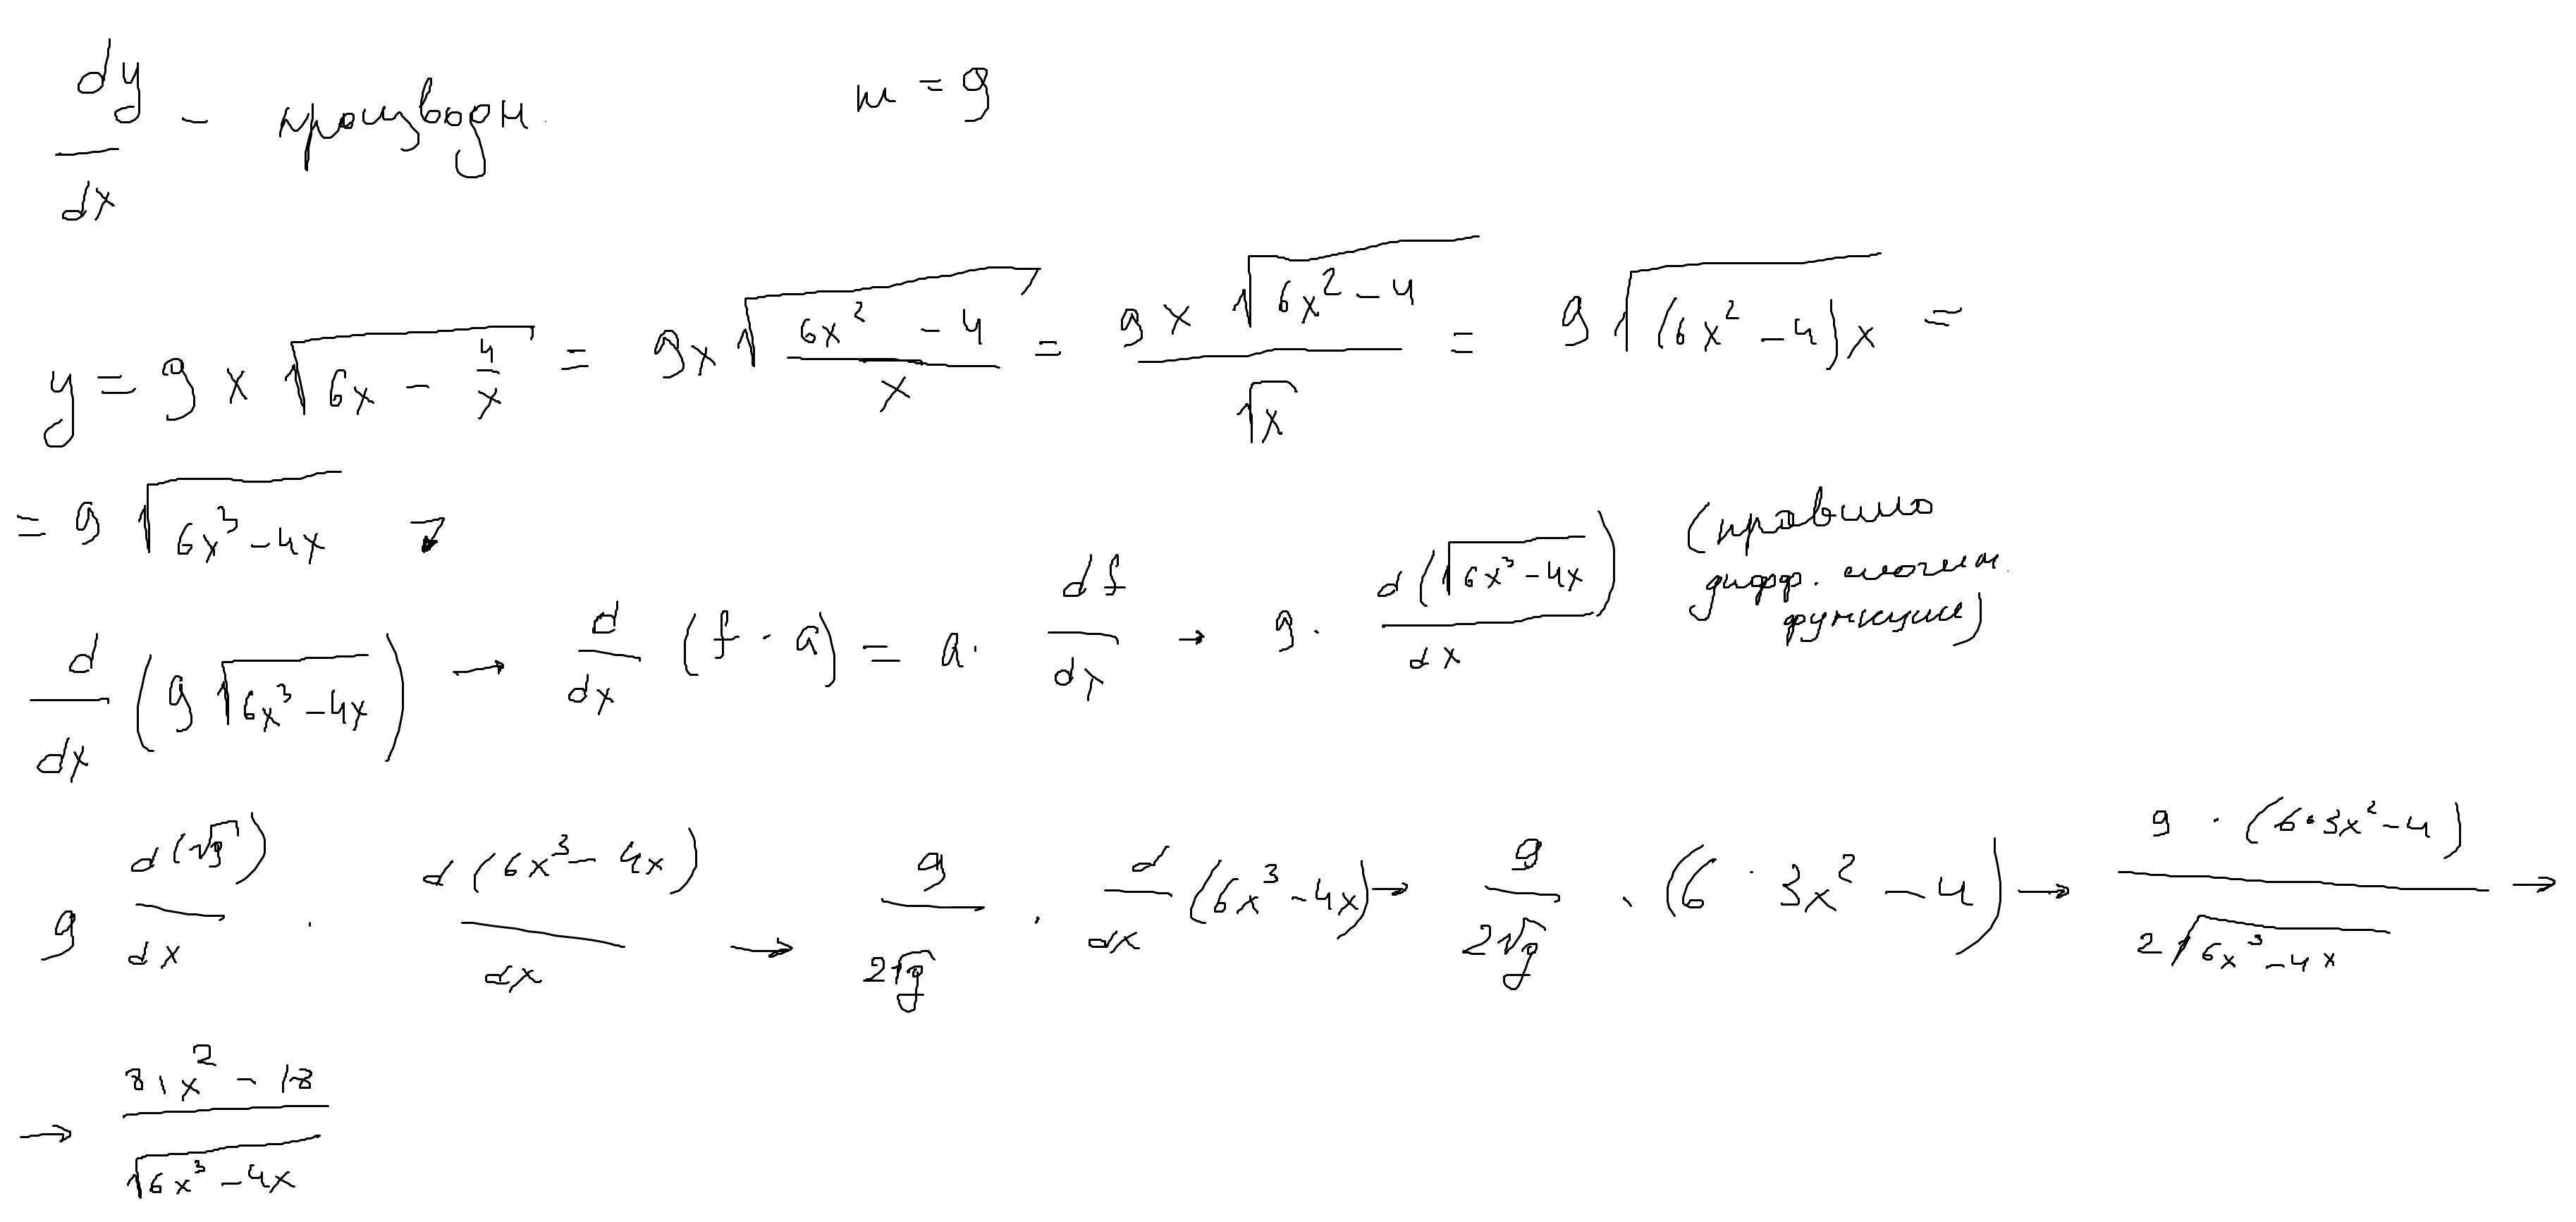 dy/dx - производн. m = 9
y = 9x √(6x - 4/x) = 9x √((6x² - 4)/x) = (9x √(6x² - 4))/√x = 9 √((6x² - 4)x) =
= 9 √(6x³ - 4x)
d/dx (9 √(6x³ - 4x)) → d/dx (f · a) = a · df/dx → 9 · d(√(6x³ - 4x))/dx (правило дифф. сложн. функции)
9 d(√g)/dx · d(6x³ - 4x)/dx → 9/(2√g) · d/dx (6x³ - 4x) → 9/(2√g) · (6 · 3x² - 4) → (9 · (6 · 3x² - 4))/(2√(6x³ - 4x)) →
→ (81x² - 18)/√(6x³ - 4x)